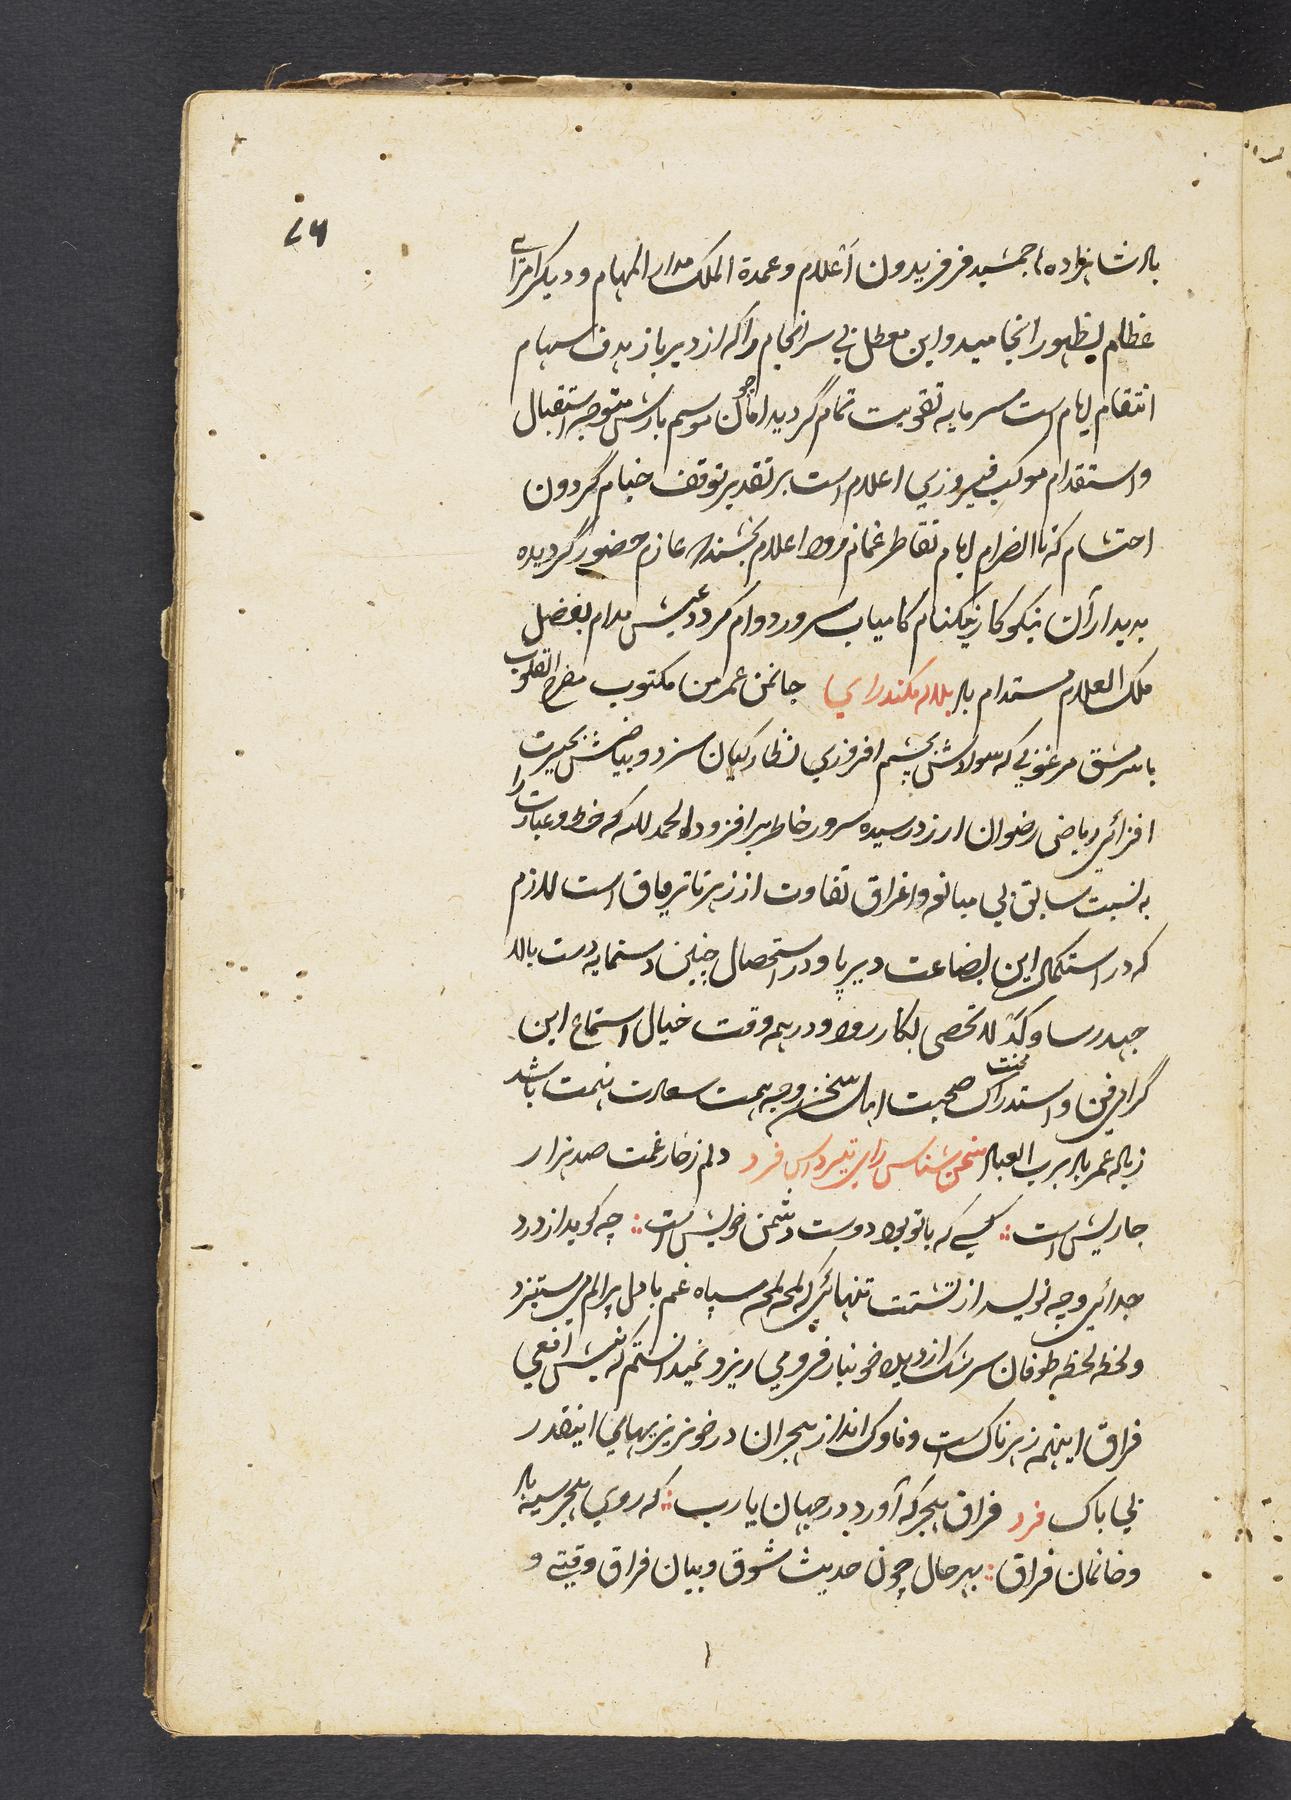 ۷۶
پادشاهزاده‌ها جمشید فر فریدون اعلام و عمدة الملک مدار المهام و دیگر امرای
عظام بظهور انجامید و این معطل بی سرانجام را که از دیرباز هدف سهام
انتقام ایام است سرمایه تقویت تمام گردید اما چون موسم بارش متوجه استقبال
و استقدام موکب فیروزی اعلام است بر تقدیر توقف خیام گردون
احتشام که تا انصرام ایام تقاطر غمام مرور اعلام بخشند عازم حضور گردیده
بدیدار آن نیکوکار نیکنام کامیاب سرور دوام گردد عیش مدام بفضل
ملک العلام مستدام باد بلاله مکندرای جانمن عمر من مکتوب مفرح القلوب
با سرمشق مرغوبی که سوادش بچشم افروزی نظارگیان سزد و بیاضش بحیرت
افزائی ریاض رضوان ارزد رسیده سرور خاطر برافزود الحمد لله که خط و عبارت را
به نسبت سابق بی مبالغه و اغراق تفاوت از زهر تا تریاق است لازم
که در استکمال این بضاعت دیرپا و در استحصال چنین دستمایه دست بالا
جهد رسا و کد لا تحصی بکار رود و در همه وقت خیال استماع این
گرامی فن و استدراک محنت صحبت اهل سخن وجه همت سعادت نهمت باشد
زیاده عمر باد برب العباد سخن شناس رای تیسرداس فرد دلم ز خار غمت صد هزار
جا ریش است : کسی که با تو بود دوست دشمن خویش است : چه گوید از درد
جدائی و چه نویسد از تشتت تنهائی که لمحه لمحه سپاه غم با دل پر الم می ستیزد
و لحظه لحظه طوفان سرشک از دیده خونبار فرو می ریزد نمیدانستم که نیش افعی
فراق اینهمه زهرناک است و ناوک انداز هجران در خونریزیهای اینقدر
بی باک فرد فراق هجر که آورد در جهان یا رب : که روی هجر سیه باد
و خانمان فراق : بهر حال چون حدیث شوق و بیان فراق وقتی و